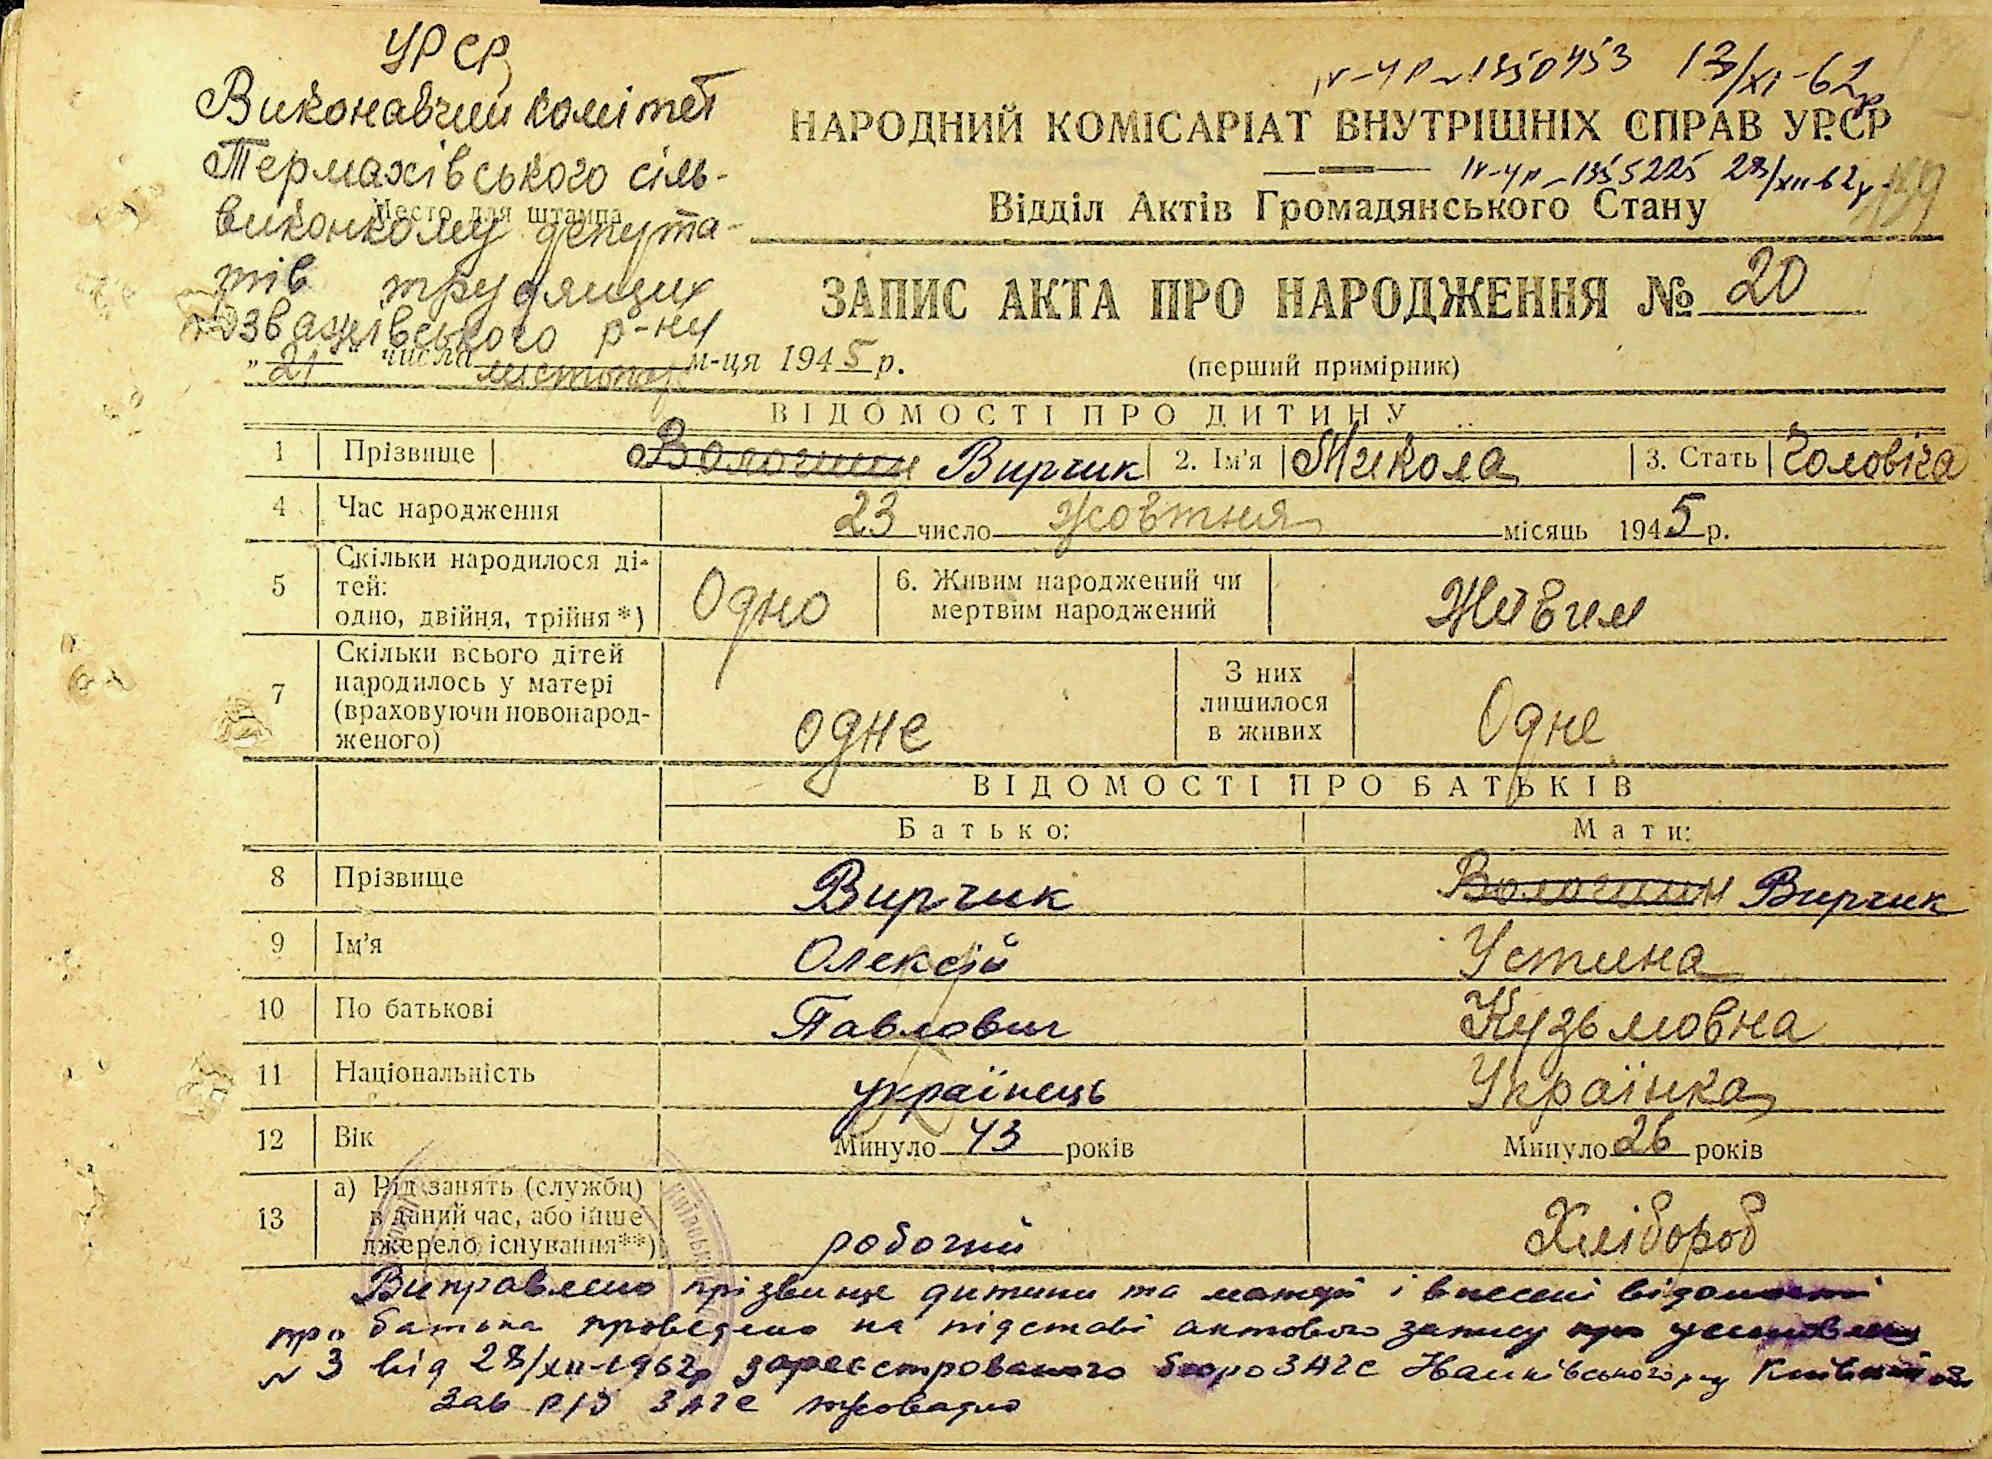 УРСР
Виконавчий комітет
Термахівського сіль-
Место для штампа
виконкому депута-
тів трудящих
Розважівського р-ну
„21“ числа листопад м-ця 1945 р.
IV-УР № 1350453 13/XI-62р
НАРОДНИЙ КОМІСАРІАТ ВНУТРІШНІХ СПРАВ УРСР
IV-УР № 1355225 28/XII 62р
Відділ Актів Громадянського Стану
ЗАПИС АКТА ПРО НАРОДЖЕННЯ № 20
(перший примірник)
ВІДОМОСТІ ПРО ДИТИНУ
1 Прізвище Волошин Вирчик 2. Ім'я Микола 3. Стать Чоловіча
4 Час народження 23 число жовтня місяць 1945 р.
5 Скільки народилося ді-
тей:
одно, двійня, трійня*) Одно 6. Живим народжений чи
мертвим народжений Живим
7 Скільки всього дітей
народилось у матері
(враховуючи новонарод-
женого) одне З них
лишилося
в живих Одне
ВІДОМОСТІ ПРО БАТЬКІВ
Батько: Мати:
8 Прізвище Вирчик Волошин Вирчик
9 Ім'я Олексій Устина
10 По батькові Павлович Кузьмовна
11 Національність українець Українка
12 Вік Минуло 43 років Минуло 26 років
13 а) Рід занять (служби)
в даний час, або інше
джерело існування**) робочий Хлібороб
Виправлено прізвище дитини та матері і внесені відомості
про батька проведено на підставі актового запису про установлен
№ 3 від 28/XII-1962р зареєстрованого бюро ЗАГС Іванківського р-ну Київської обл
Зав Р/Б ЗАГС